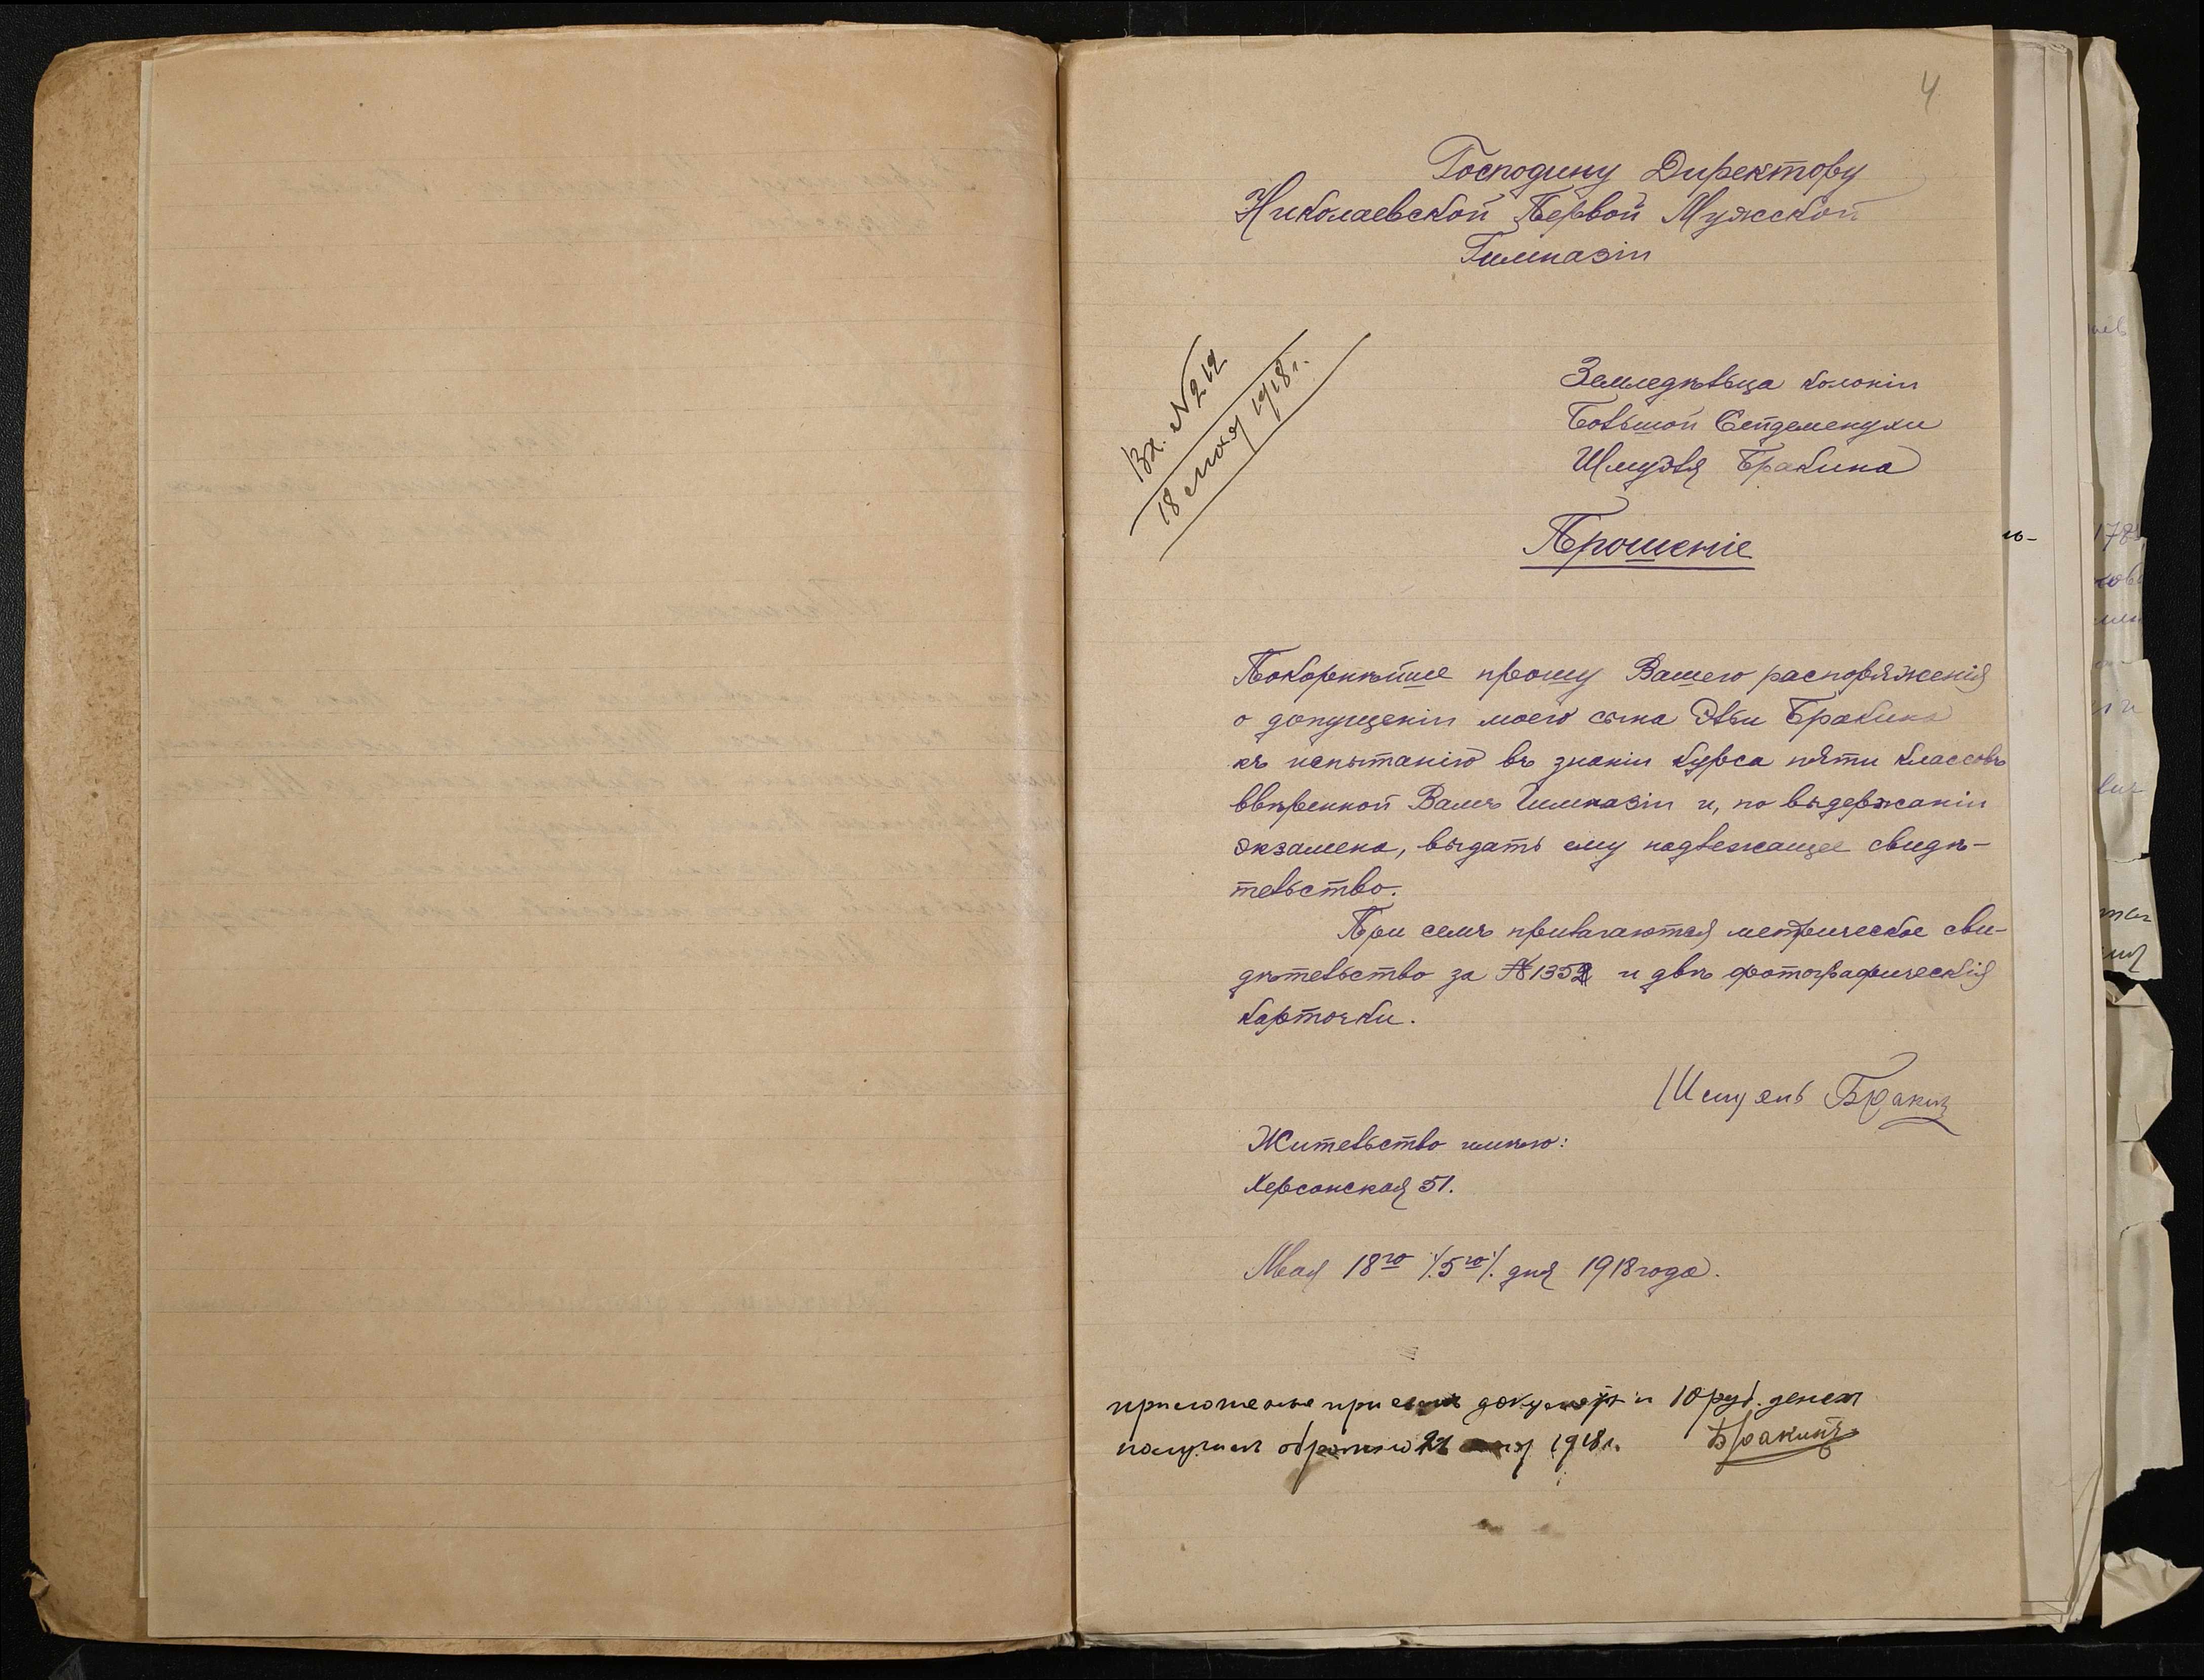 4
Господину Директору
Николаевской Первой Мужской
Гимназіи
Вх. №212
18 мая 1918 г.
Земледѣльца колоніи
Большой Сейдеменухи
Шмуэля Бракина
Прошеніе
Покорнѣйше прошу Вашего распоряженія
о допущеніи моего сына Эли Бракина
къ испытанію въ знаніи курса пяти классовъ
ввѣренной Вамъ Гимназіи и, по выдержаніи
экзамена, выдать ему надлежащее свидѣ-
тельство.
При семъ прилагаются метрическое сви-
дѣтельство за №1352 и двѣ фотографическія
карточки.
Шмуель Бракин
Жительство имѣю:
Херсонская 51.
Мая 18го /.5го/. дня 1918 года.
приложеные при семъ документы и 10 руб. денег
получил обратно 1918 г. Бракинъ